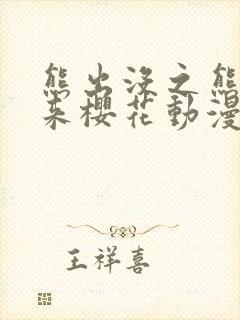 熊出没之熊
来樱花動漫
王祥喜